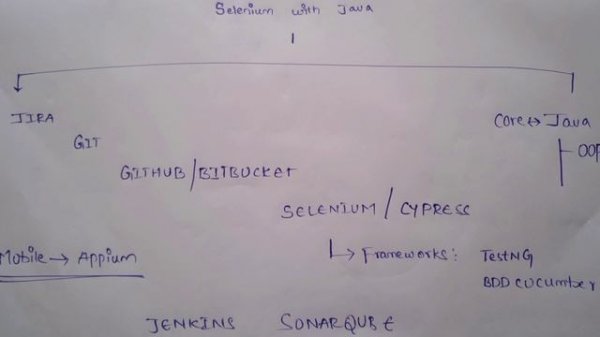 Selenium with Java
JIRA
Core↔Java
GIT
OOP
GITHUB/BITBUCKET
SELENIUM / CYPRESS
Mobile → Appium
↳ Frameworks: TestNG
BDD CUCUMBER
JENKINS SONARQUBE